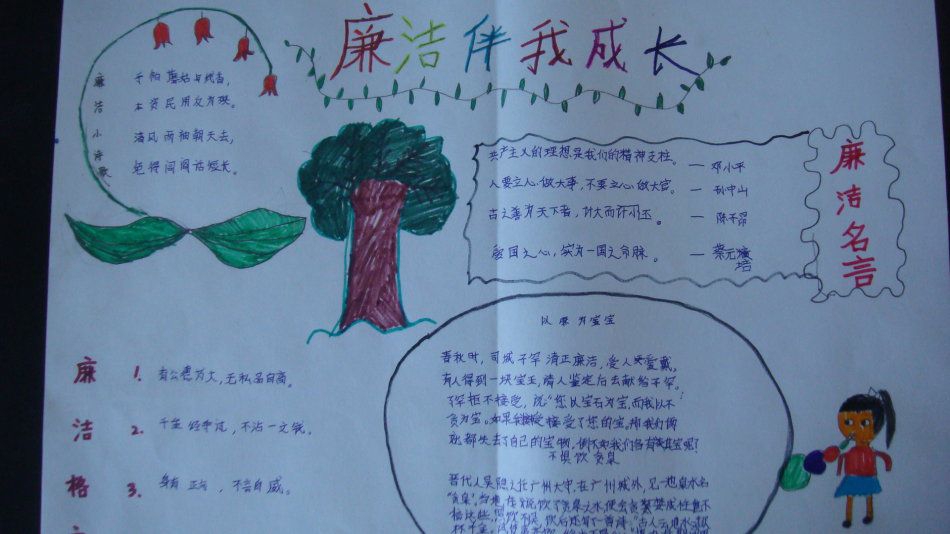 廉洁伴我成长
廉洁小诗歌
手帕蘑菇与线香，
本资民用反为殃。
清风两袖朝天去，
免得闾阎话短长。
共产主义的理想是我们的精神支柱。 — 邓小平
人要立心做大事，不要立心做大官。 — 孙中山
古之善为天下者，计大而不计小。
爱国之心，实为一国之命脉。 — 蔡元培
廉洁名言
廉洁格
1. 有公德为大，无私品自高。
2. 千金经手过，不沾一文钱。
3. 身有正气，不言自威。
以廉为宝
春秋时，司城子罕清正廉洁，受人爱戴。
有人得到一块宝玉，请人鉴定后去献给子罕。
子罕拒不接受，说“您以宝石为宝，而我以不
贪为宝。如果我接受了您的宝，那我们俩
就都失去了自己的宝物，倒不如我们各有其宝呢？
不惧饮贪泉
晋代人吴隐之任广州太守，在广州城外，见一池泉水名
“贪泉”。当地传说饮了贪泉之水，便会贪婪成性。他不